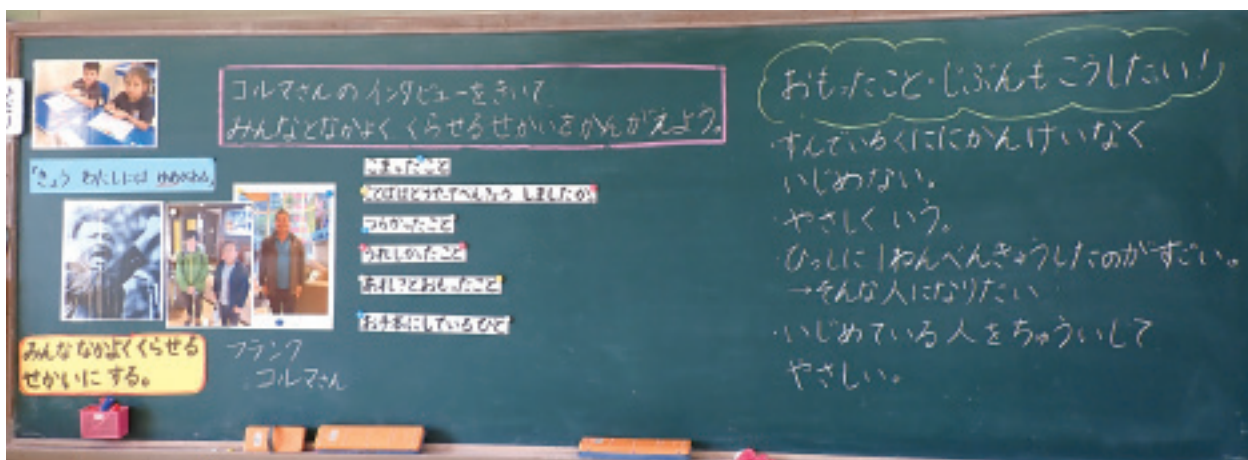 コルマさんのインタビューをきいて
みんなとなかよくくらせるせかいをかんがえよう。
「きょう わたしには ゆめがある」
こまったこと
ことばはどうやってべんきょうしましたか
つらかったこと
うれしかったこと
あれ？とおもったこと
お手本にしているひと
みんななかよくくらせる
せかいにする。
フランク
コルマさん
おもったこと・じぶんもこうしたい！
・すんでいるくににかんけいなく
いじめない。
・やさしくいう。
・ひっしに1ねんべんきょうしたのがすごい。
→そんな人になりたい
・いじめている人をちゅういして
やさしい。